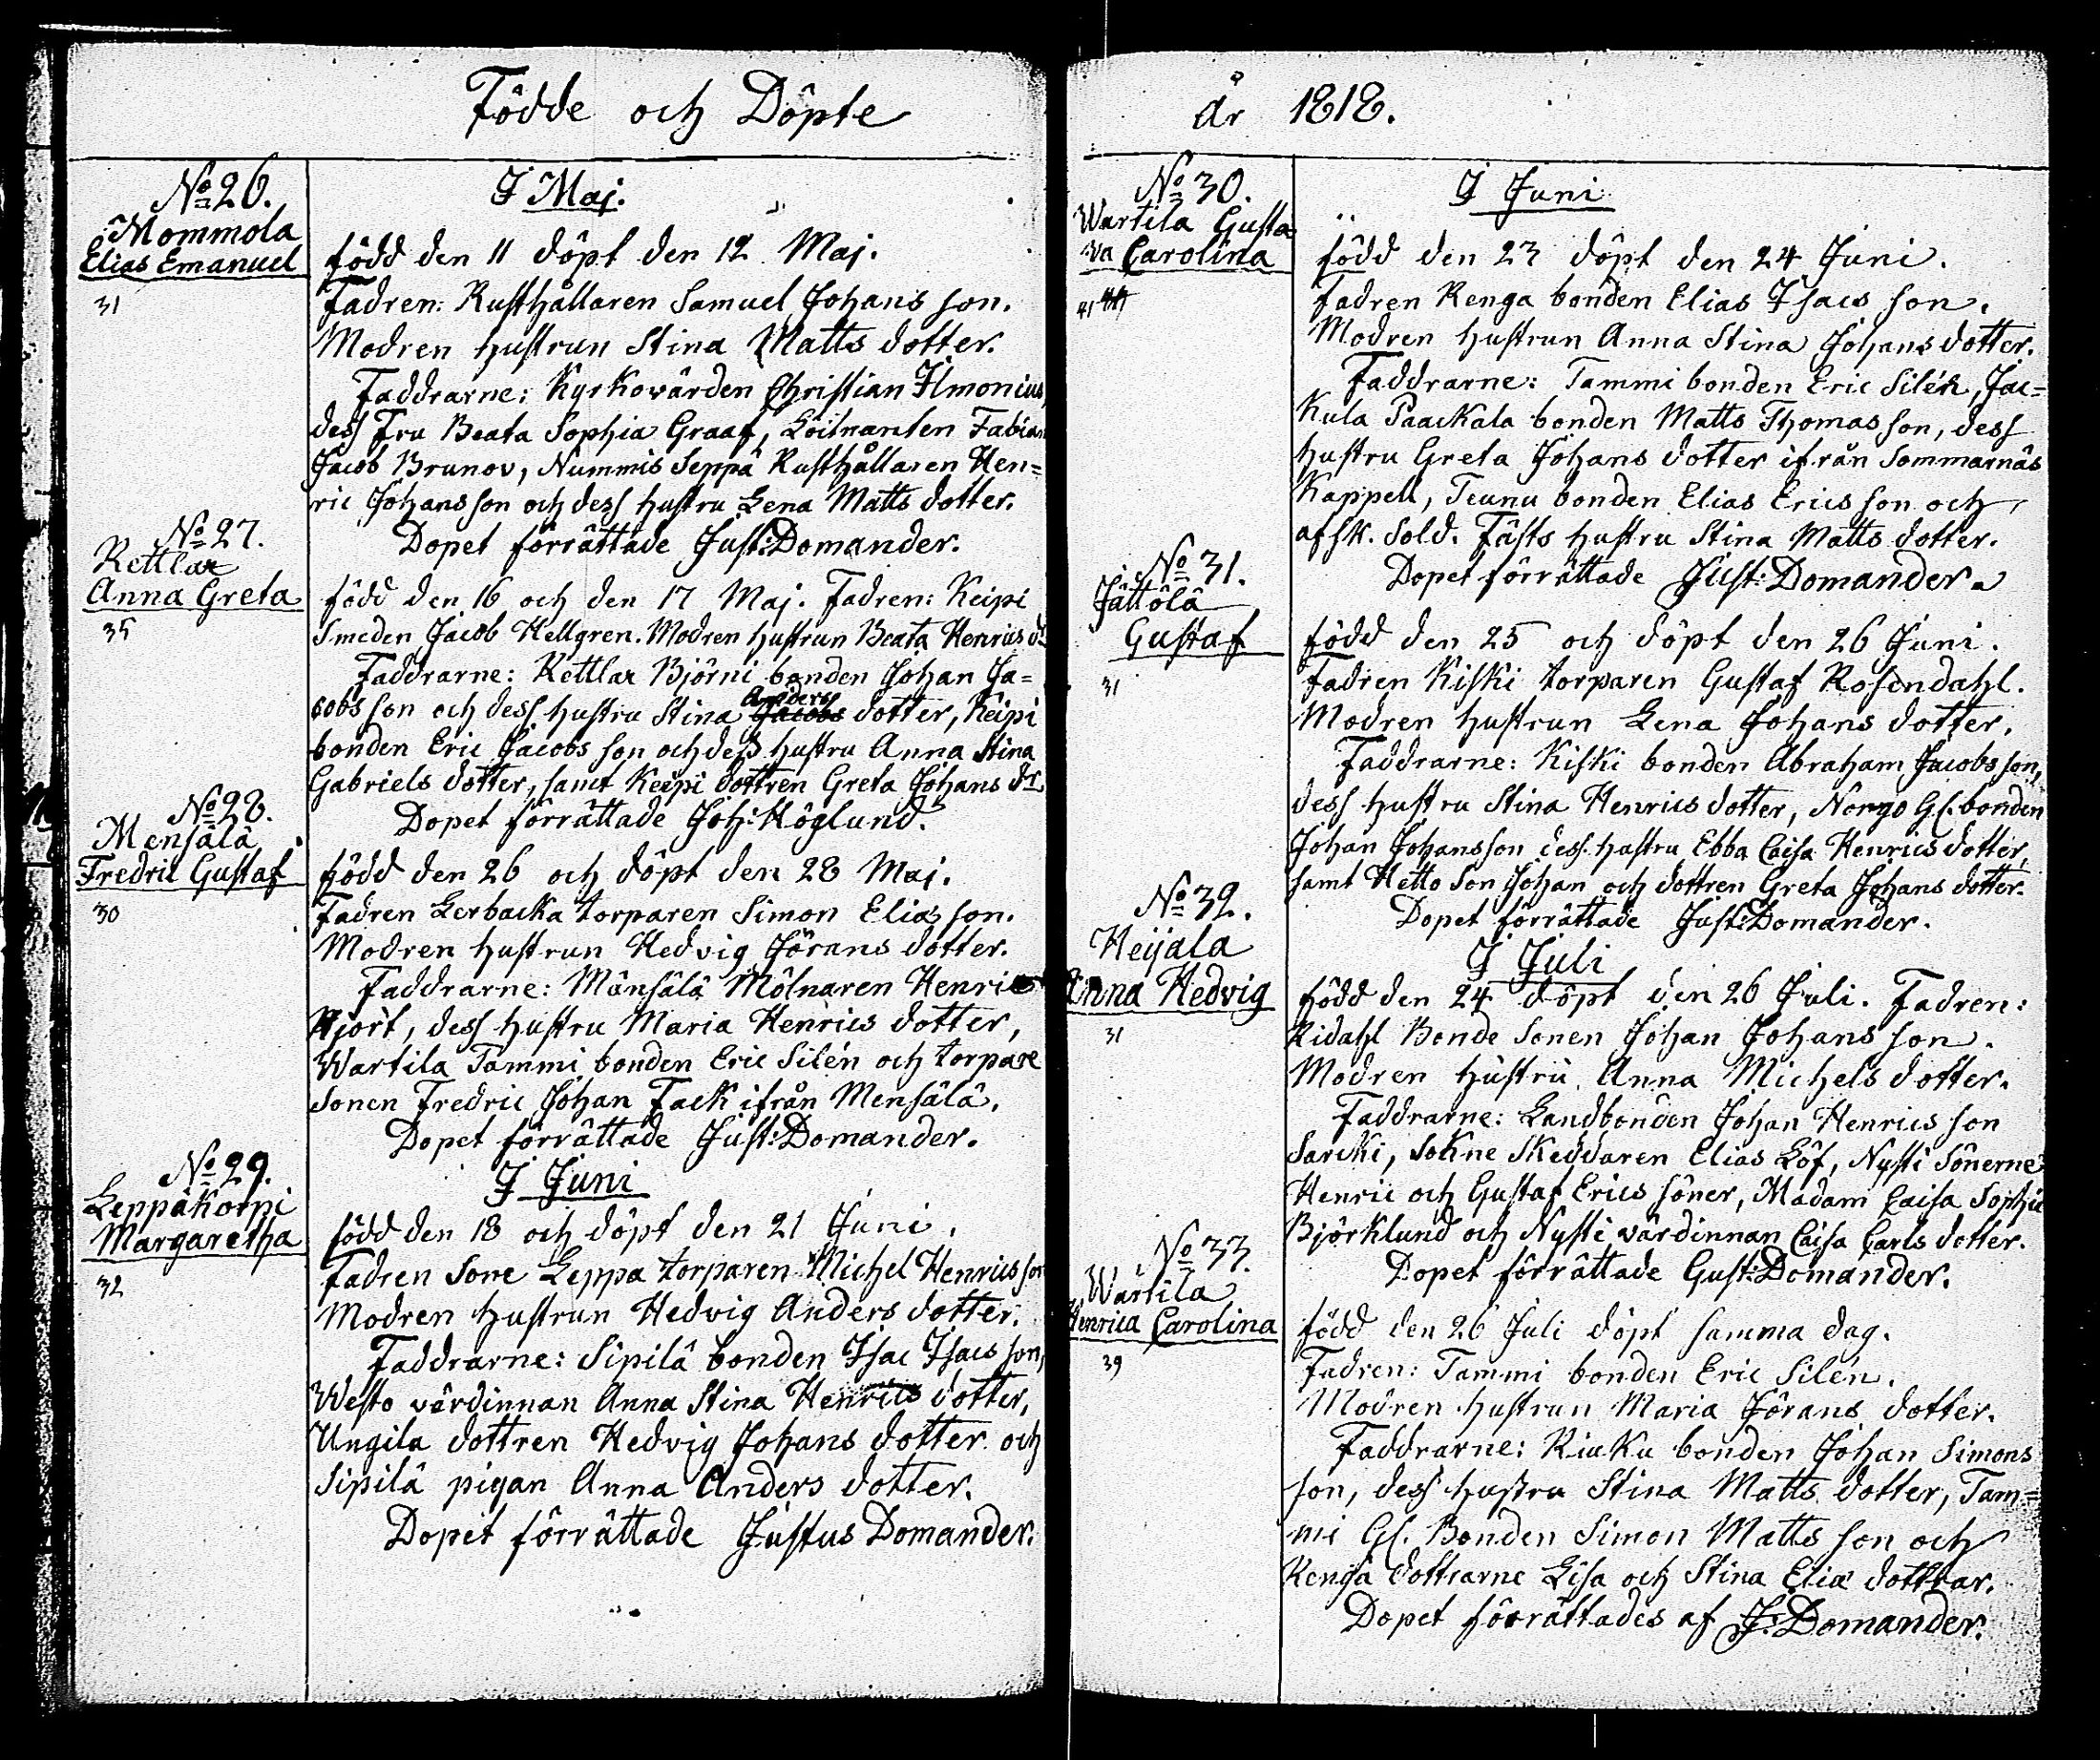 Födde och Döpte
No 26.
Mommola
Elias Emanuel
31
I Maj.
född den 11 döpt den 12 Maj.
Fadren: Rusthållaren Samuel Johans son.
Modren hustrun Stina Matts dotter.
Faddrarne: Kyrkovärden Christian Ilmonius,
dess Fru Beata Sophia Graaf, Löitnanten Fabian
Jacob Brunov, Nummis Seppä Rusthållaren Hen=
ric Johansson och dess hustru Lena Matts dotter.
Dopet förrättade Just: Domander.
No 27.
Kettlar
Anna Greta
35
född den 16 och den 17 Maj. Fadren: Keipi
Smeden Jacob Hellgren. Modren hustrun Beata Henrics dr
Faddrarne: Kettlar Björni bonden Johan Ja=
cobs son och dess hustru Stina Jacobs Anders dotter, Keipi
bonden Eric Jacobs son och dess hustru Anna Stina
Gabriels dotter, samt Keipi dottren Greta Johans dr
Dopet förrättade Joh: Höglund.
No 28.
Mensälä
Fredric Gustaf
30
född den 26 och döpt den 28 Maj.
Fadren Lerbacka torparen Simon Elias son.
Modren hustrun Hedvig Jörans dotter.
Faddrarne: Mänsälä Mölnaren Henric
Hjort, dess hustru Maria Henrics dotter,
Wartila Tammi bonden Eric Silén och torpare
Sonen Fredric Johan Fack ifrån Mensälä.
Dopet förrättade Just: Domander.
No 29.
Leppäkorpi
Margaretha
32
I Juni
född den 18 och döpt den 21 Juni.
Fadren Sone Leppa torparen Michel Henrics son
Modren hustrun Hedvig Anders dotter.
Faddrarne: Sipilä bonden Isac Isacs son,
Westo värdinnan Anna Stina Henrics dotter,
Ungila dottren Hedvig Johans dotter och
Sipilä pigan Anna Anders dotter.
Dopet förrättade Justus Domander.
År 1818.
No 30.
Wartila Gusta
va Carolina
41
I Juni
född den 23 döpt den 24 Juni.
Fadren Renga bonden Elias Isacs son.
Modren hustrun Anna Stina Johans dotter.
Faddrarne: Tammi bonden Eric Silén, Jac=
kula Paackala bonden Matts Thomas son, dess
hustru Greta Johans dotter ifrån Sommarnäs
Kappell, Teunu bonden Elias Erics son och
afsk. Sold. Fästs hustru Stina Matts dotter.
Dopet förrättade Just: Domander.
No 31.
Jättölä
Gustaf
31
född den 25 och döpt den 26 Juni.
Fadren Kiski torparen Gustaf Rosendahl.
Modren hustrun Lena Johans dotter.
Faddrarne: Kiski bonden Abraham Jacobs son,
dess hustru Stina Henrics dotter, Norgo Gl. bonden
Johan Johansson dess hustru Ebba Caisa Henrics dotter,
samt Hetto Son Johan och dottren Greta Johans dotter.
Dopet förrättade Just: Domander.
No 32.
Heijala
Anna Hedvig
31
I Juli
född den 24 döpt den 26 Juli. Fadren:
Ridahl Bonde Sonen Johan Johans son.
Modren hustru Anna Michels dotter.
Faddrarne: Landbonden Johan Henrics son
Sarcki, Sokne Skeddaren Elias Löf, Nysti Sönerne
Henric och Gustaf Erics söner, Madam Caisa Sophia
Björklund och Nysti värdinnan Caisa Carls dotter.
Dopet förrättade Gust: Domander.
No 33.
Wartila
Henrica Carolina
39
född den 26 Juli döpt samma dag.
Fadren: Tammi bonden Eric Silén.
Modren hustrun Maria Jörans dotter.
Faddrarne: Riuku bonden Johan Simons
son, dess hustru Stina Matts dotter, Tam=
mi Gl. Bonden Simon Matts son och
Renga dottrarne Lisa och Stina Eliæ dottrar.
Dopet förrättades af J: Domander.